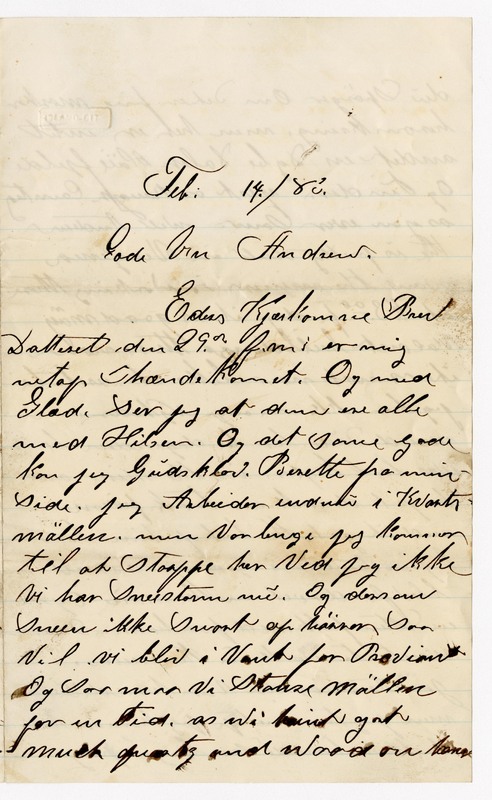 Feb: 14./83.
Gode Ven Andrew.
Eders Kjærkomne Brev
Datteret den 29de f.m: er mig
netop Ihændekomet. Og med
Glæd. Ser jeg at dem ere alle
med Hilsen. Og det same gode
kan jeg Gudskelov. Berette fra min
Side. jeg Arbeider endnu i Kvarts
mällen. men Vor lenge jeg kommer
til at Stoppe her Ved jeg ikke
Vi har Sneestorm nu. Og dersom
Sneen ikke Snart op hörrer, Saa
Vil vi bliv i Vant for Proviant
Og Saa maa Vi Stanse Mällen
for en Tid. as Wi haint got
much quartz and Wood on hange